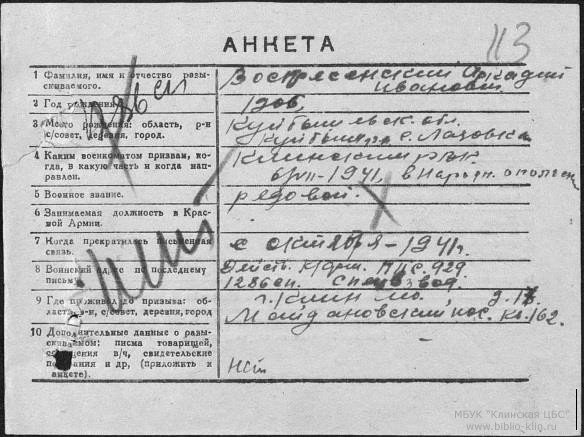 АНКЕТА
113
1 Фамилия, имя и отчество разы-
скиваемого.
Воскресенский Аркадий
Иванович
2 Год рождения
1906
3 Место рождения: область, р-н
с/совет, деревня, город.
Куйбышевск. обл.
Куйбыш
4 Каким военкоматом призван, ко-
гда, в какую часть и когда на-
правлен.
Клинским РВК
1941, в Народн. ополчен
5 Военное звание.
рядовой.
6 Занимаемая должность в Крас-
ной Армии.
7 Когда прекратилась письменная
связь.
с октября-1941г.
8 Воинский адрес по последнему
письму
Действ. Кр. Арм. ППС 929
1286 сп. взвод.
9 Где проживал до призыва: об-
ласть, р-н, с/совет, деревня, город
г. Клин мо. д. 18
Майдановский пос. кв. 162.
10 Дополнительные данные о разы-
скиваемом: письма товарищей,
сообщения в/ч, свидетельские
показания и др, (приложить к
анкете).
нет
МБУК "Клинская ЦБС"
www.biblio-klig.ru